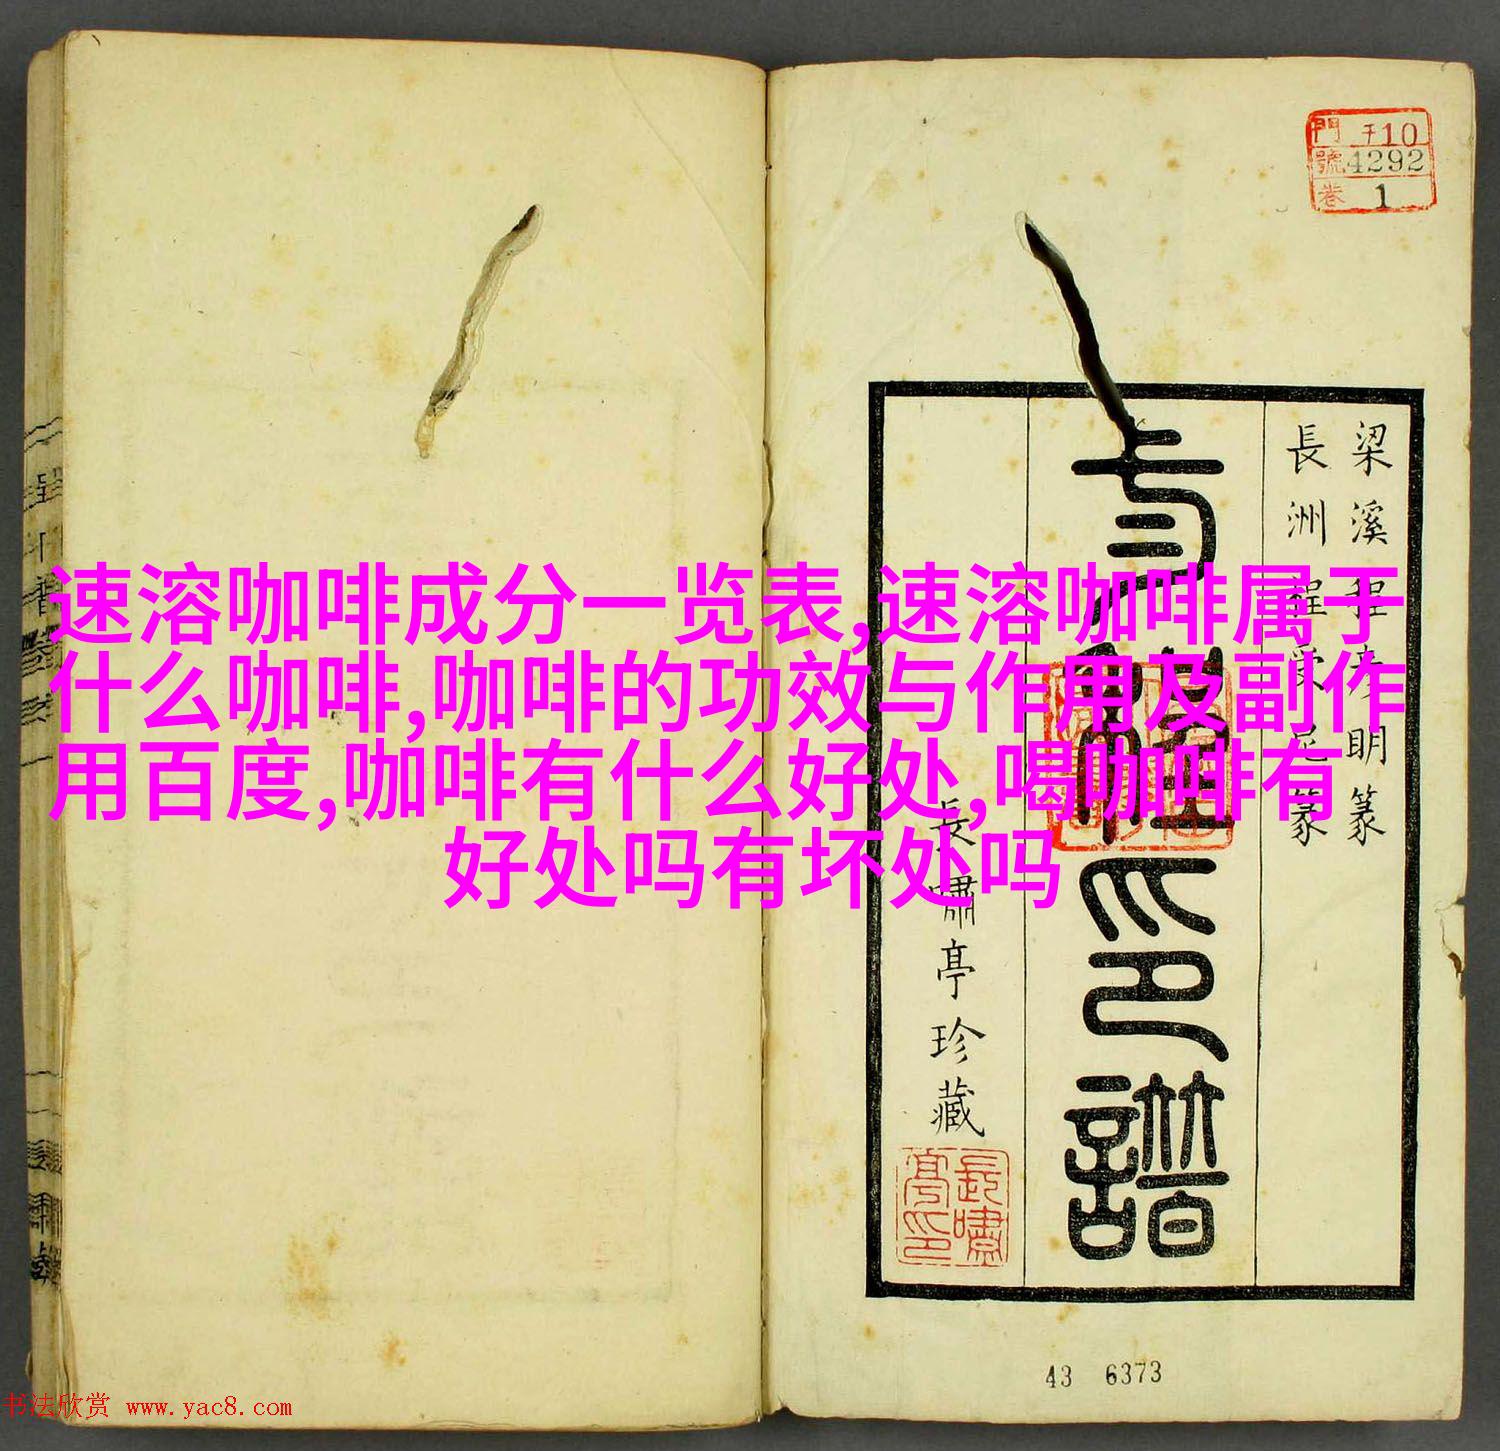 門 子10
號 4292
卷 1
梁溪程彦明篆
長洲程受尼篆
印譜
長嘯亭珍藏
速溶咖啡成分一览表,速溶咖啡属于
什么咖啡,咖啡的功效与作用及副作
用百度,咖啡有什么好处,喝咖啡有
好处吗有坏处吗
43 6373
书法欣赏 www.yac8.com